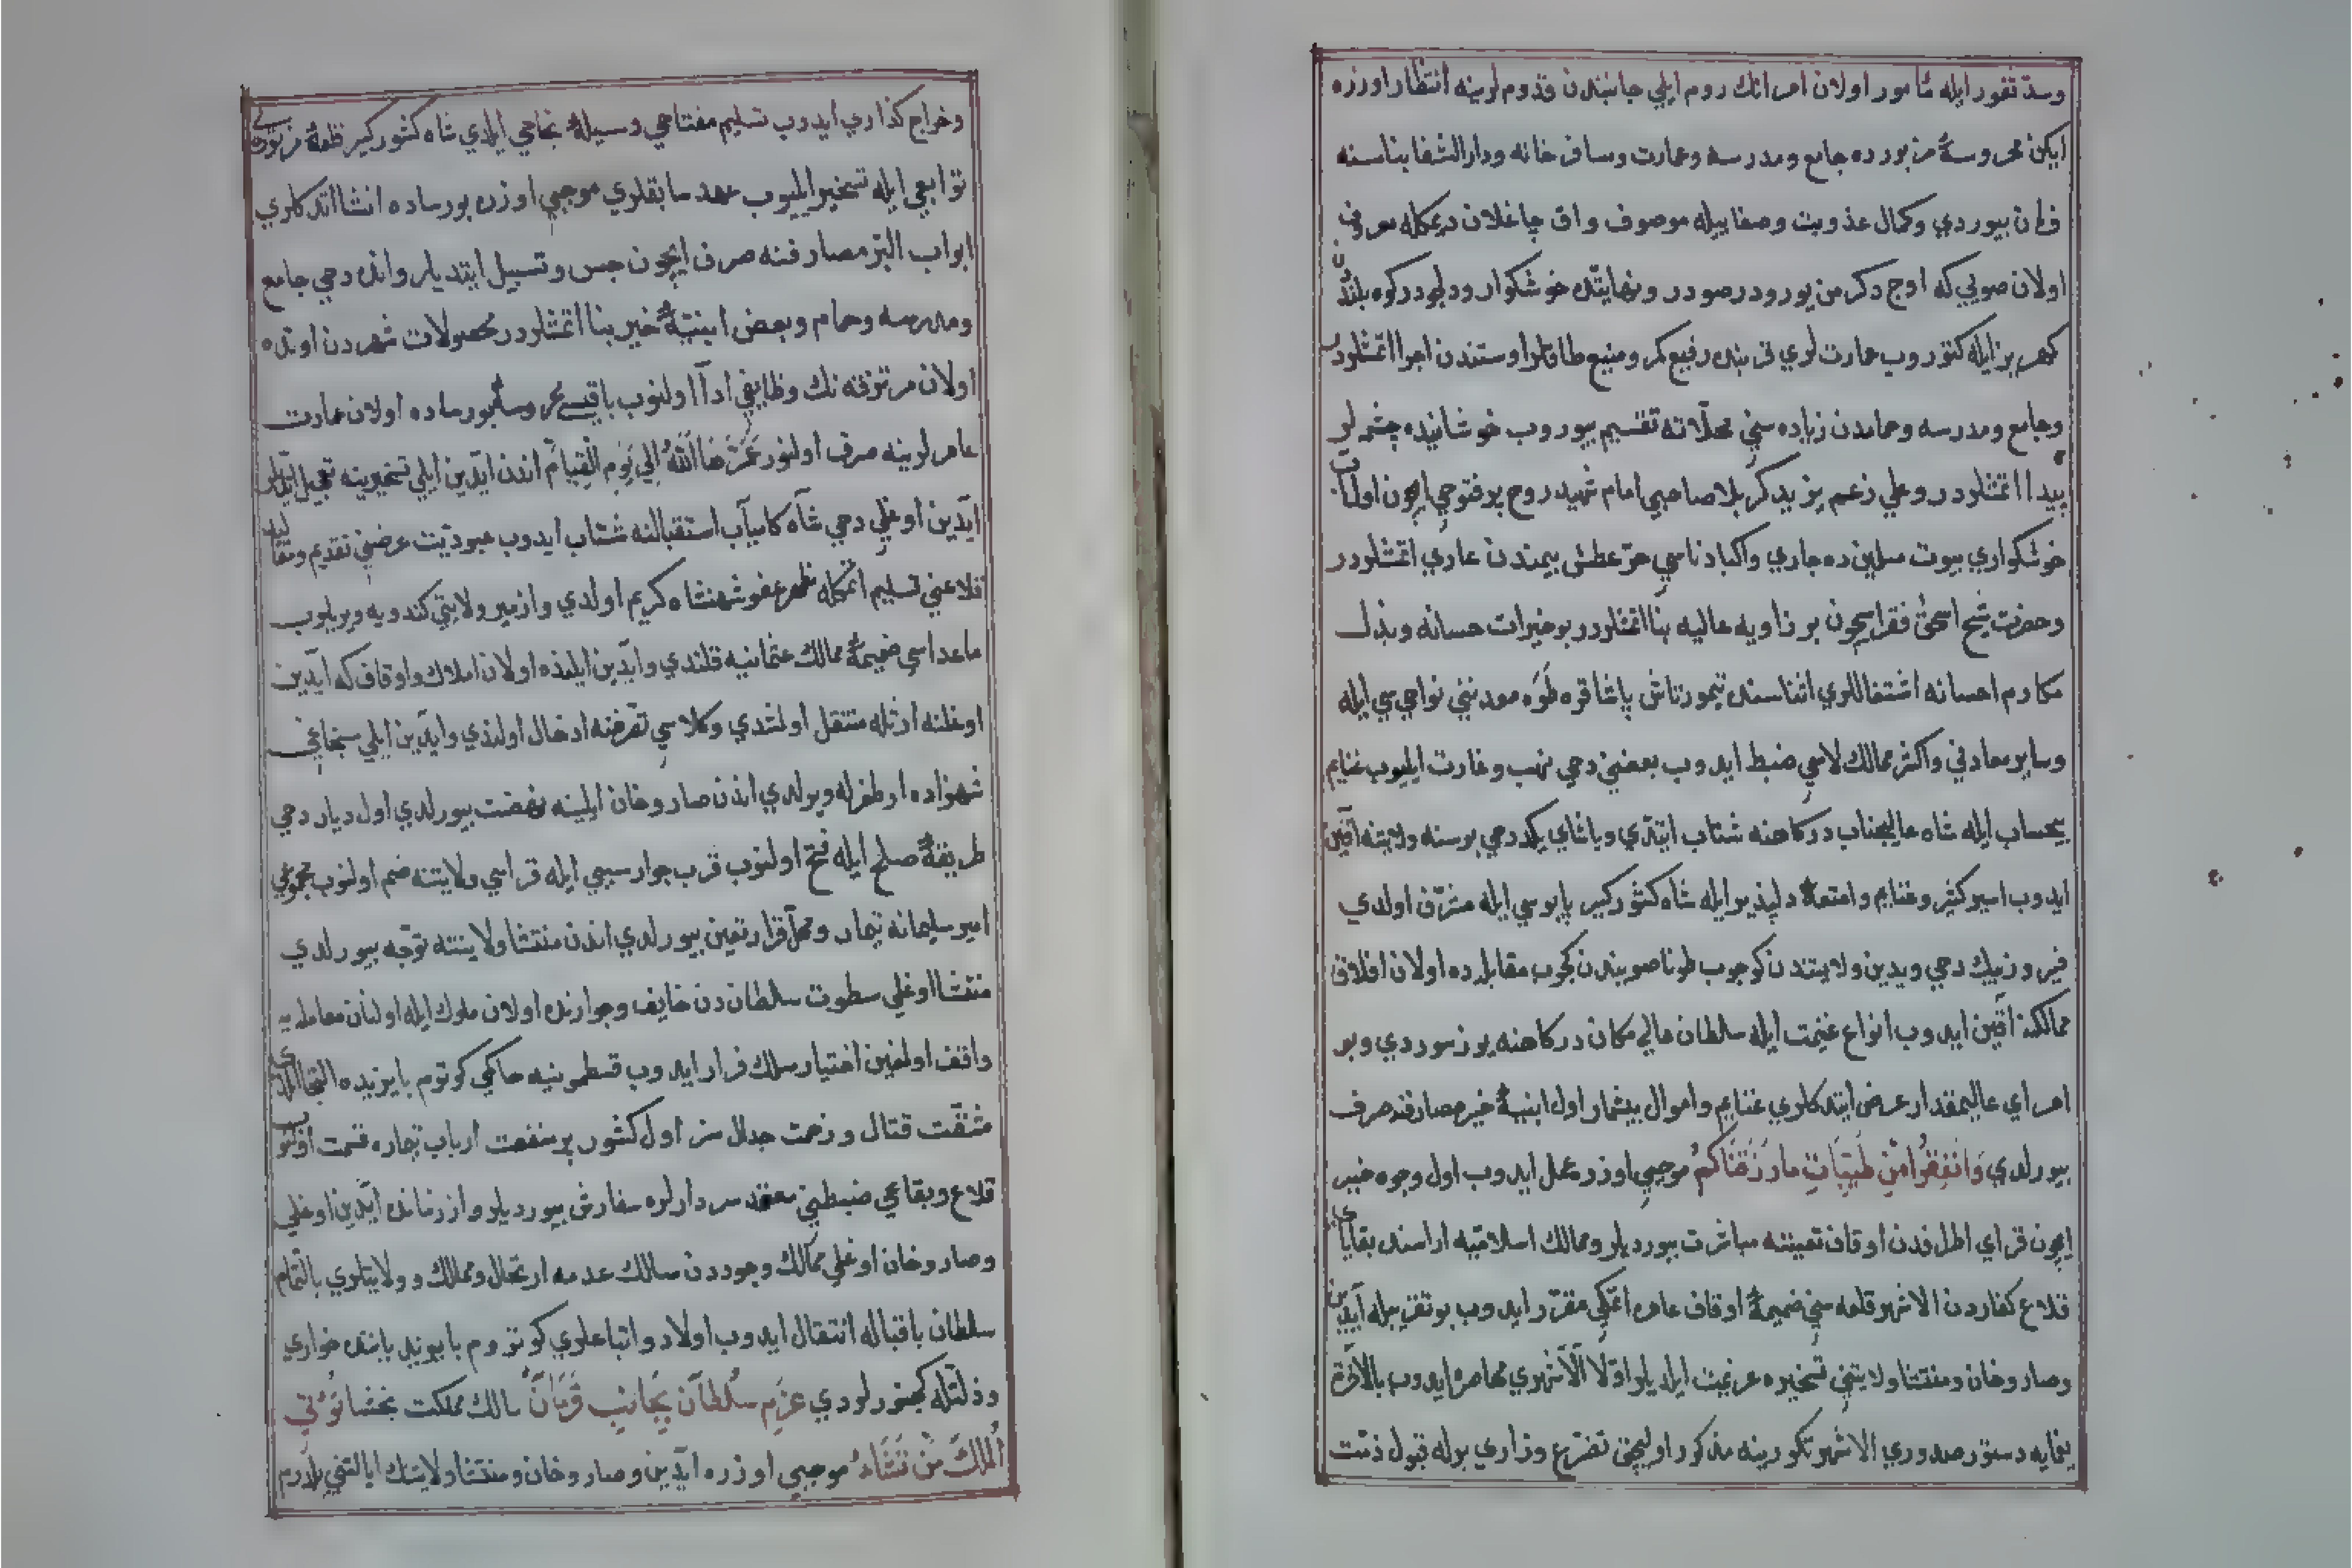 وسد ثغور ايله مأمور اولان امرانك روم ايلي جانبندن قدوم لرينه انتظار اوزره
ايكن محروسهٔ مزبورده جامع ومدرسه وعمارت ومسافرخانه ودار الشفا بناسنه
فرمان بيوردي وكمال عذوبت وصفا بيله موصوف واق چاغلان ديمكله معروف
اولان صويي كه اوج دكرمن يورودر صودر ونهايتده خوشكوار ودلجودر كوه بلنددن
كهريز ايله كتوروب عمارت لري قربنده رفيع كمر ومنيع طاقلر اوستندن اجرا اتمشلردر
وجامع ومدرسه وحمامدن زياده سني محلاته تقسيم بيوروب خوشاينده چشمه لر
پيدا اتمشلردر وعلي زعم يزيد كربلا صاحبي امام شهيد روح پر فتوحي ايچون اول اب
خوشكواري بيوت مسلمينده جاري واكباد ناسي حر عطش بيمندن عاري اتمشلردر
وحضرت شيخ اسحق فقراسيچون بر زاويه عاليه بنا اتمشلردر بو خيرات حسانه وبذل
مكارم احسانه اشتغاللري اثناسنده تيمورتاش پاشا قره طوه معدنني نواحي سي ايله
وساير معادني واكثر ممالك لاسي ضبط ايدوب بعضني دحي نهب وغارت ايليوب غنايم
بيحساب ايله شاه عاليجناب دركاهنه شتاب ايتدي وپاشاي يكد دحي بوسنه ولايتنه اقين
ايدوب اسير كثير وغنايم وامتعهٔ دلپذير ايله شاه كشوركير پابوسي ايله مشرف اولدي
فيروز بيك دحي ويدين ولايتندن كوچوب طونا صويندن كچوب مقابلده اولان افلاق
ممالكنه اقين ايدوب انواع غنيمت ايله سلطان عالي مكان دركاهنه يوز سوردي وبو
امراي عاليمقدار عرض ايتدكلري غنايم واموال بيشمار اول ابنيهٔ خير مصارفنه صرف
بيورلدي وَاَنْفِقُوا مِنْ طَيِّبَاتِ مَا رَزَقْنَاكُمْ موجبي اوزره عمل ايدوب اول وجوه خير
ايچون قراي اطرافدن اوقاف تعييننه مباشرت بيورديلر وممالك اسلاميه اراسنده بقاياي
قلاع كفاردن الاشهر قلعه سني ضميمهٔ اوقاف عامره اتمكي مقرر ايدوب بو تقريبله آيدين
وصاروخان ومنتشا ولايتني تسخيره عزيمت ايلديلر اولا الاشهري محاصره ايدوب بالآخره
يغمايه دستور صدوري الاشهر تكورينه مذكور اوليجق تضرع وزاري بوله قبول ذمت
وخراج كذاري ايدوب تسليم مفتاحي وسيلهٔ نجاحي ايلدي شاه كشوركير قلعهٔ مزبوره يي
توابعي ايله تسخير ايليوب عهد سابقلري موجبي اوزره بورساده انشا اتدكلري
ابواب البر مصارفنه صرف ايچون حبس وتسبيل ايتديلر وانده دحي جامع
ومدرسه وحمام وبعض ابنيهٔ خير بنا اتمشلردر محصولات شهردن اوتده
اولان مرتزقه نك وظايفي ادآ اولنوب باقيسي محروسهٔ بورساده اولان عمارت
عامره لرينه صرف اولنور عَمَّرَهَا اللّٰهُ اِلَي يَوْمِ الْقِيَامِ اندن آيدين ايلي تسخيرينه تعجيل ايتديلر
آيدين اوغلي دحي شاه كامياب استقبالنه شتاب ايدوب عبوديت عرضني تقديم ومقاليد
قلاعني تسليم اتمكله مظهر عفو شهنشاه كريم اولدي وازمير ولايتي كندويه ويريلوب
ماعداسي ضميمهٔ ممالك عثمانيه قلندي وآيدين ايلنده اولان املاك واوقاف كه آيدين
اوغلنه ارثله منتقل اولندي وكلاسي تقرضنه ادخال اولندي وآيدين ايلي سنجاغي
شهزاده ارطغرله ويرلدي اندن صاروخان ايلينه نهضت بيورلدي اول ديار دحي
طريقهٔ صلح ايله فتح اولنوب قرب جوار سببي ايله قراسي ولايتنه ضم اولنوب مجموعي
امير سليمانه تيمار ومحل قرار تعيين بيورلدي اندن منتشا ولايتنه توجه بيورلدي
منتشا اوغلي سطوت سلطاندن خايف وجوارنده اولان ملوك ايله اولنان معامله يه
واقف اولمغين اختيار سلك فرار ايدوب قسطمونيه حاكمي كوتروم بايزيده التجا ايلدي
مشقت قتال وزحمت جدال سز اول كشور پر منفعت ارباب تجاره قسمت اولنوب
قلاع وبقاعي ضبطني معتمد سردارلره سفارش بيورديلر واز زمانده آيدين اوغلي
وصاروخان اوغلي ممالك وجوددن سالك عدمه ارتحال وممالك وولايتلري بالتمام
سلطان باقباله انتقال ايدوب اولاد واتباعلري كوتروم بايزيد ياننده خواري
وذلتله كچنورلردي عَزْمِ سُلْطَان بِجَانِبِ قَرَمَان سالك مملكت بخشا تُؤْتِي
الْمُلْكَ مَنْ تَشَاءُ موجبي اوزره آيدين وصاروخان ومنتشا ولايتنك ايالتني يلدرم